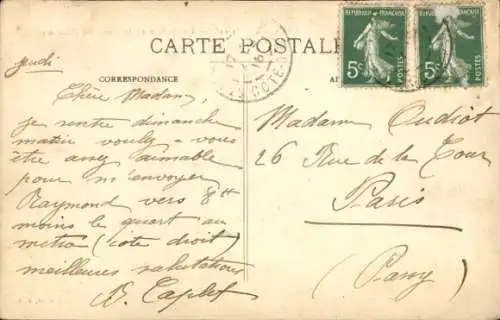 CARTE POSTALE
CORRESPONDANCE
RÉPUBLIQUE FRANÇAISE
5c POSTES
5c POSTES
jeudi
Chère Madame,
je rentre dimanche
matin voulez-vous
être assez aimable
pour m'envoyer
Raymond vers 8h
moins le quart au
métro (côté droit)
meilleures salutations
Madame Oudiot
26 Rue de la Tour
Paris
(Passy)